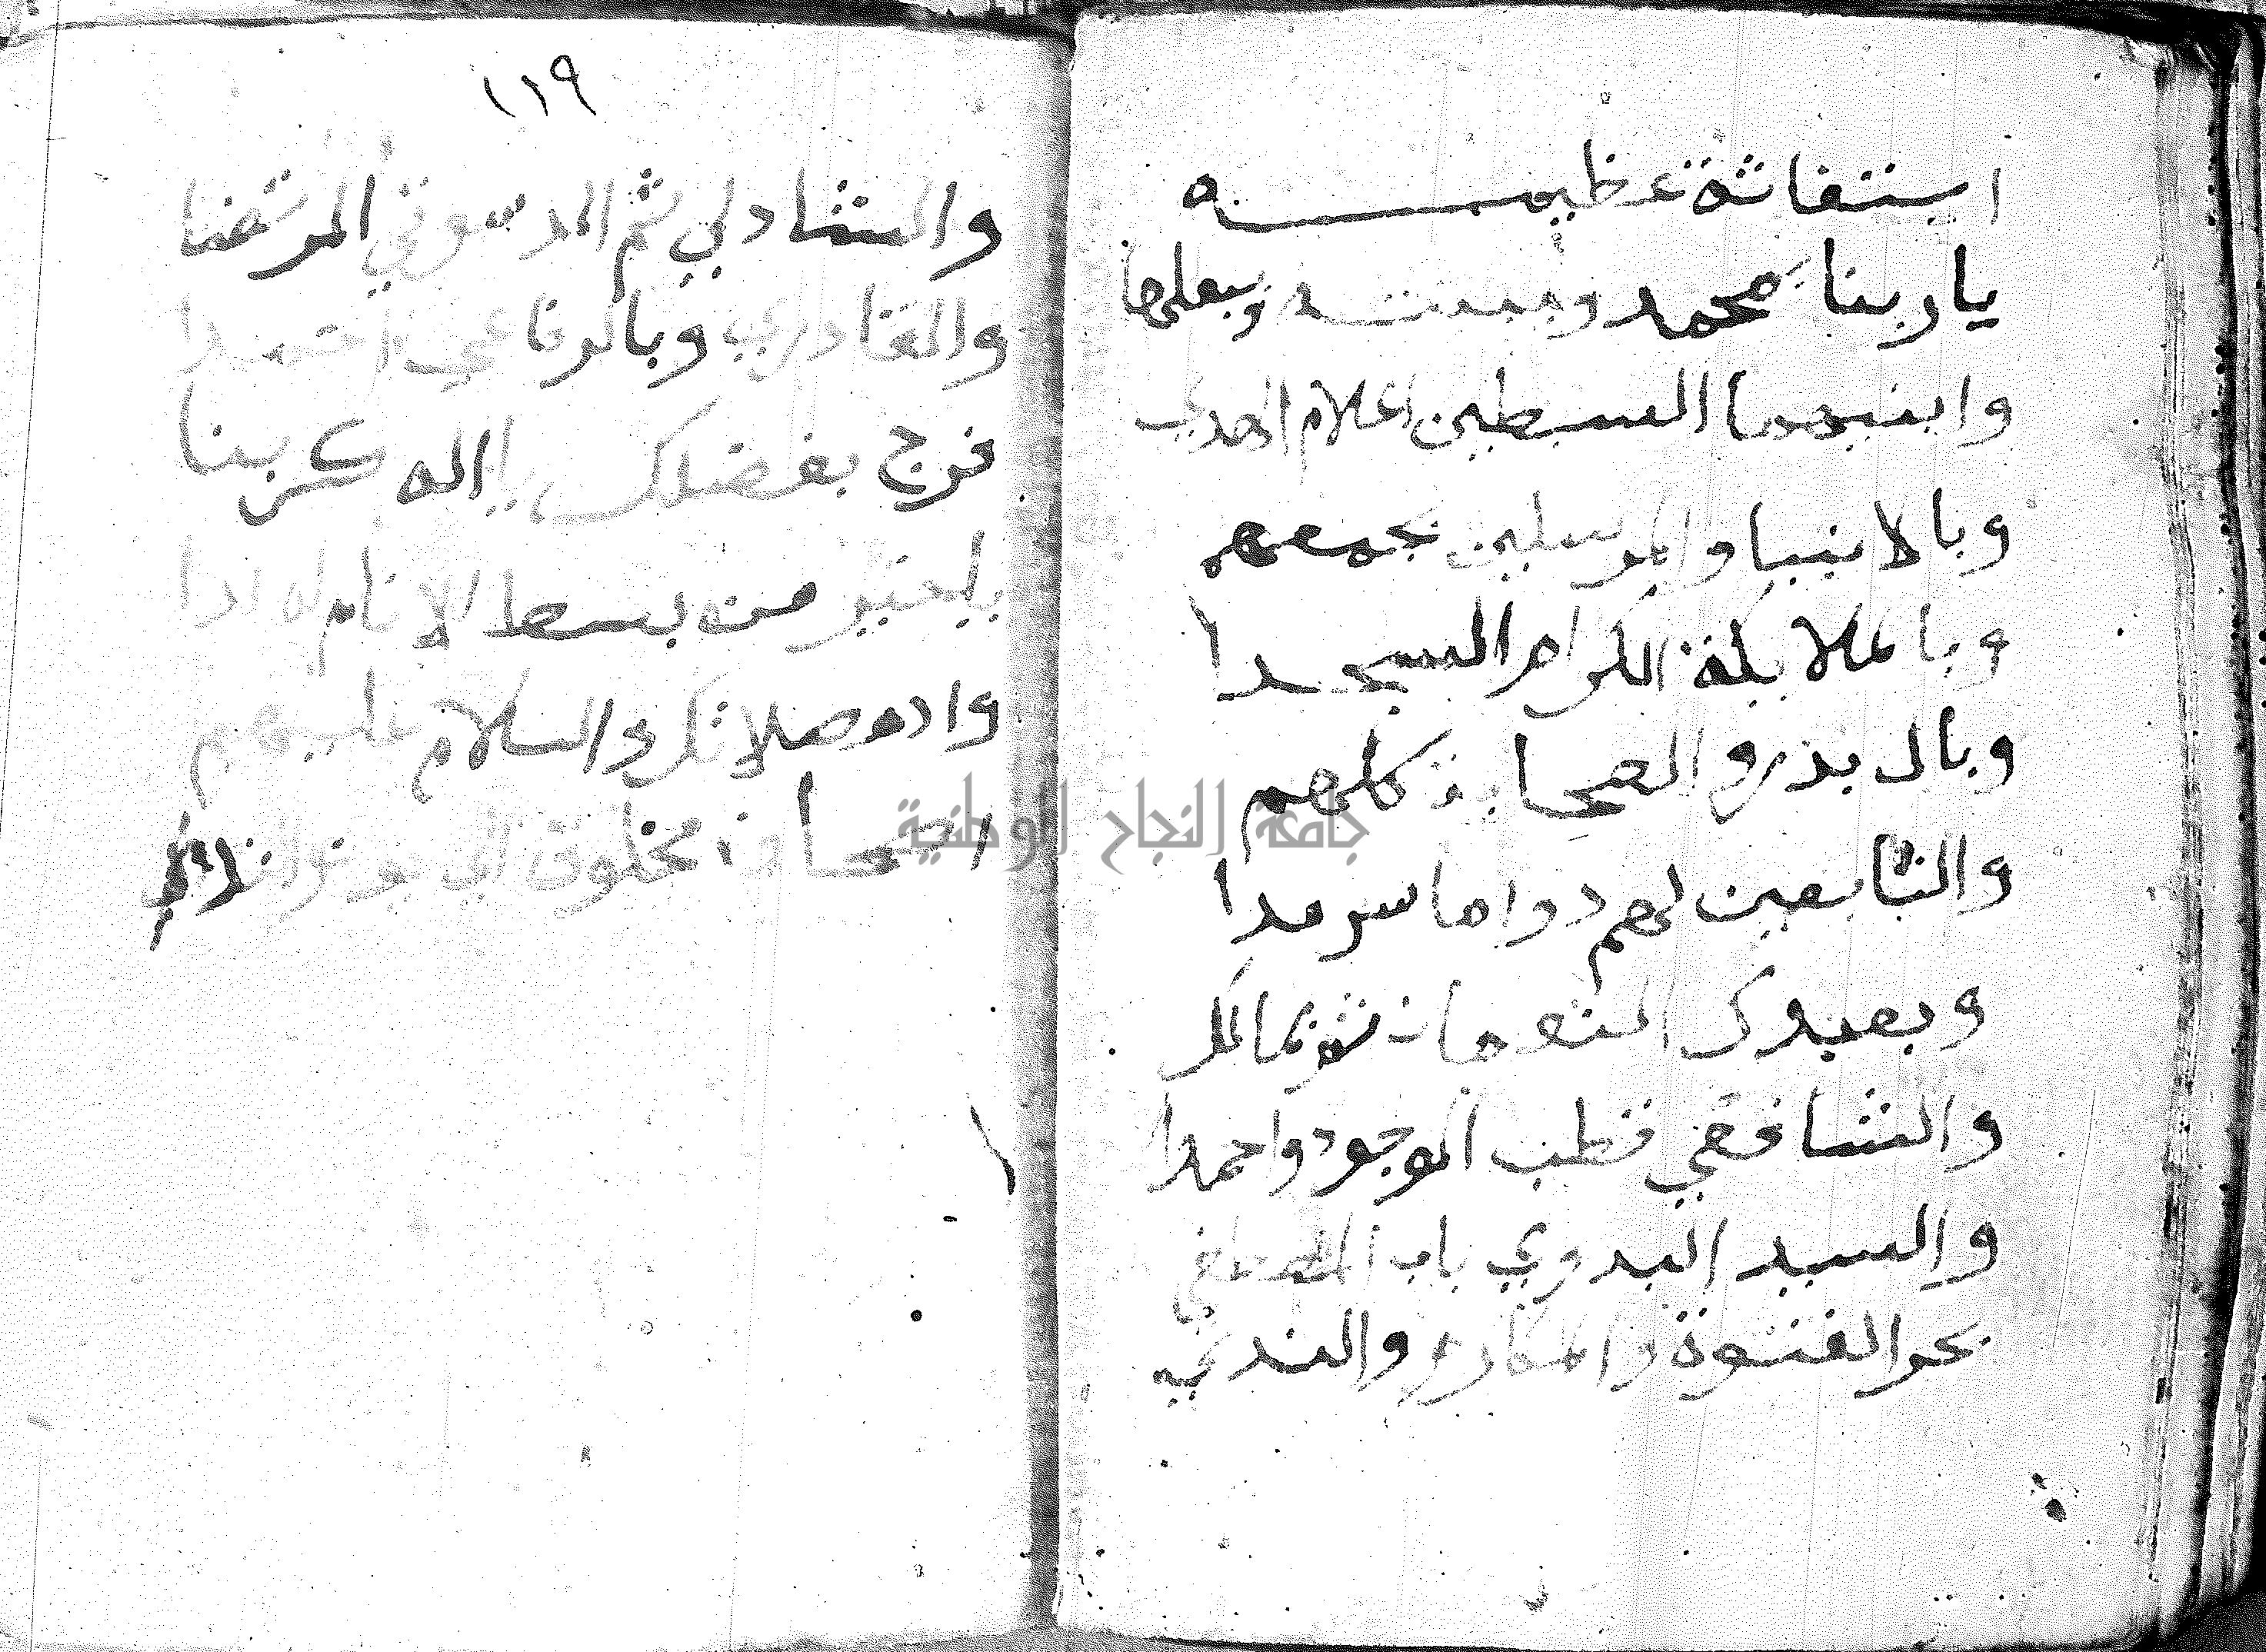 استغاثة عظيمه
يا ربنا بمحمد وببنته وببعلها
وابنيهما السبطين اعلام الهدي
وبالانبيا والمرسلين بجمعهم
وبالملايكة الكرام السجدا
وبال بدر والصحابة كلهم
والتابعين لهم دواما سرمدا
وبعبدك النعمان ثم بمالك
والشافعي قطب الوجود واحمدا
والسيد البدوي باب المصطفي
بحر الفتوة والمكارم والندي
١١٩
والشادلي ثم الدسوقي المرتضا
والقادري وبالرفاعي احمدا
فرج بفضلك يا اله كربنا
يا خير من بسط الانام له يدا
وادم صلاتك والسلام عليهم
ما مخلوق الي
جامعة النجاح الوطنية